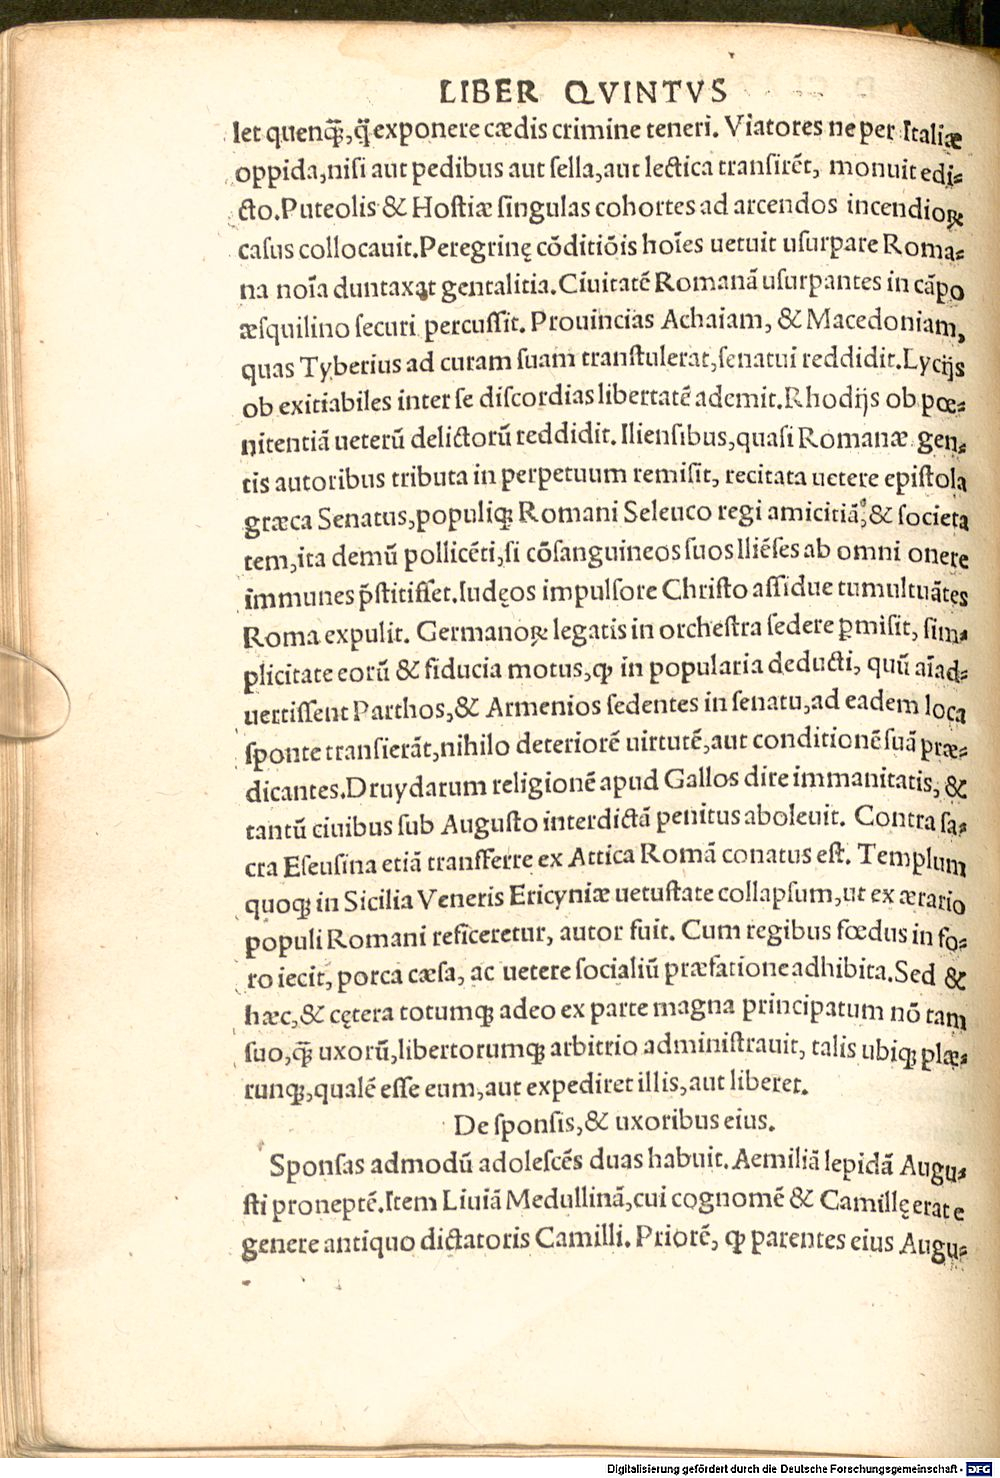 LIBER QVINTVS
let quenq̃, q̃ exponere cædis crimine teneri. Viatores ne per Italiæ
oppida, nisi aut pedibus aut sella, aut lectica transirẽt, monuit edi-
cto. Puteolis & Hostiæ singulas cohortes ad arcendos incendioꝝ
casus collocauit. Peregrinę cõditiõis hoĩes uetuit usurpare Roma-
na noĩa duntaxat gentalitia. Ciuitatẽ Romanã usurpantes in cãpo
æsquilino securi percussit. Prouincias Achaiam, & Macedoniam,
quas Tyberius ad curam suam transtulerat, senatui reddidit. Lycijs
ob exitiabiles inter se discordias libertatẽ ademit. Rhodijs ob pœ-
nitentiã ueterũ delictorũ reddidit. Iliensibus, quasi Romanæ gen-
tis autoribus tributa in perpetuum remisit, recitata uetere epistola
græca Senatus, populiqꝫ Romani Seleuco regi amicitiã, & societa
tem, ita demũ pollicẽti, si cõsanguineos suos Iliẽses ab omni onere
immunes p̃stitisset. Iudęos impulsore Christo assidue tumultuãtes
Roma expulit. Germanoꝝ legatis in orchestra sedere ꝑmisit, sim-
plicitate eorũ & fiducia motus, ꝙ in popularia deducti, quũ aĩad-
uertissent Parthos, & Armenios sedentes in senatu, ad eadem loca
sponte transierãt, nihilo deteriorẽ uirtutẽ, aut conditionẽ suã præ-
dicantes. Druydarum religionẽ apud Gallos dire immanitatis, &
tantũ ciuibus sub Augusto interdictã penitus aboleuit. Contra sa-
cra Eseusina etiã transferre ex Attica Romã conatus est. Templum
quoqꝫ in Sicilia Veneris Ericyniæ uetustate collapsum, ut ex ærario
populi Romani reficeretur, autor fuit. Cum regibus fœdus in fo-
ro iecit, porca cæsa, ac uetere socialiũ præfatione adhibita. Sed &
hæc, & cętera totumqꝫ adeo ex parte magna principatum nõ tam
suo, q̃ uxorũ, libertorumqꝫ arbitrio administrauit, talis ubiqꝫ plæ-
runqꝫ, qualẽ esse eum, aut expediret illis, aut liberet.
De sponsis, & uxoribus eius.
Sponsas admodũ adolescẽs duas habuit. Aemiliã lepidã Augu-
sti proneptẽ. Item Liuiã Medullinã, cui cognomẽ & Camillę erat e
genere antiquo dictatoris Camilli. Priorẽ, ꝙ parentes eius Augu-
Digitalisierung gefördert durch die Deutsche Forschungsgemeinschaft - DFG